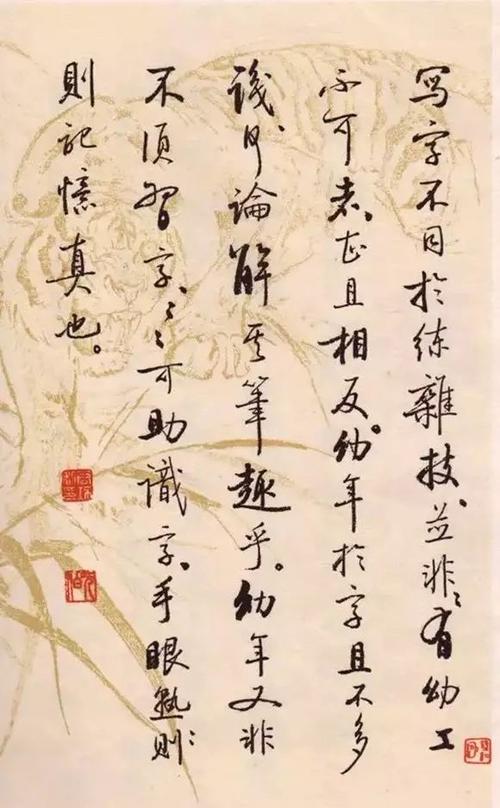 写字不同於练雜技、並非〻有幼工
不可者、甚且相反。幼年於字且不多
識、何論解其筆趣乎。幼年又非
不須習字、〻〻可助識字、手眼熟則
則記憶真也。